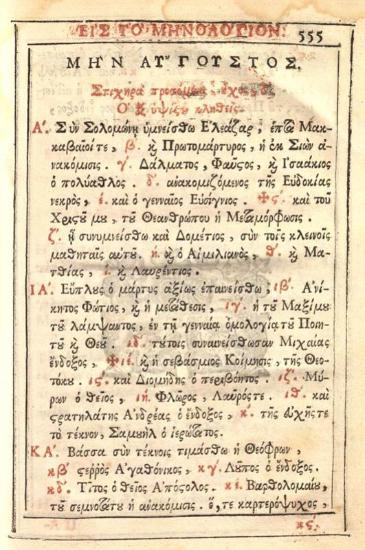 ΕΙΣ ΤΟ ΜΗΝΟΛΟΓΙΟΝ. 555
ΜΗΝ ΑΥΓΟΥΣΤΟΣ.
Στιχηρὰ προσόμοια, ἦχος δ.
Ὁ ἐξ ὑψίςου κληθείς.
Α. Σὺν Σολομώνῃ ὑμνείσθω Ἐλεάζαρ, ἑπτὰ Μακ-
καβαίοι τε, β. κ Πρωτομάρτυρος, ἡ ἐκ Σιὼν ἀ-
νακόμισις. γ. Δάλματος, Φαῦςος, κ Ἰσαάκιος
ὁ πολύαθλος. δ. ἀνακομιζόμενος τῆς Εὐδοκίας
νεκρὸς, έ. καὶ ὁ γενναῖος Εὐσίγνιος. ς. καὶ τοῦ
Χριςοῦ μου, τοῦ Θεανθρώπου ἡ Μεταμόρφωσις.
ζ. ᾗ συνυμνείσθω καὶ Δομέτιος, σὺν τοῖς κλεινοῖς
μαθηταῖς αὐτοῦ. ή. κ ὁ Αἰμιλιανὸς, θ. κ Ματ-
θαίας, ί. κ Λαυρέντιος.
ΙΑ. Εὔπλος ὁ μάρτυς ἀξίως ἐπαινείσθω, ιβ. Ἀνί-
κητος Φώτιος, κ ἡ μετάθεσις, ιγ. ἡ τοῦ Μαξίμου
τοῦ λάμψαντος, ἐν τῇ γενναίᾳ ὁμολογίᾳ τοῦ Ποιη-
τοῦ κ Θεοῦ. ιδ. τούτοις συναινείσθωσαν Μιχαίας
ἔνδοξος, ιέ. κ ἡ σεβάσμιος Κοίμησις, τῆς Θεο-
τόκου. ις. καὶ Διομήδης ὁ περιβόητος. ιζ. Μύ-
ρων ὁ θεῖος, ιή. Φλῶρος, Λαυρός τε. ιθ. καὶ
ςρατηλάτης Ἀνδρέας ὁ ἔνδοξος, κ. τῆς εὐχῆς τε
τὸ τέκνον, Σαμουὴλ ὁ ἱερώτατος.
ΚΑ. Βάσσα σὺν τέκνοις τιμάσθω ἡ Θεόφρων,
κβ. ςερρὸς Ἀγαθόνικος, κγ. Λοῦπος ὁ ἔνδοξος.
κδ. Τίτος ὁ θεῖος Ἀπόςολος. κέ. Βαρθολομαίου,
τοῦ σεμνοτάτου ἡ ἀνακόμισις. ὅ,τε καρτερόψυχος,
κς.